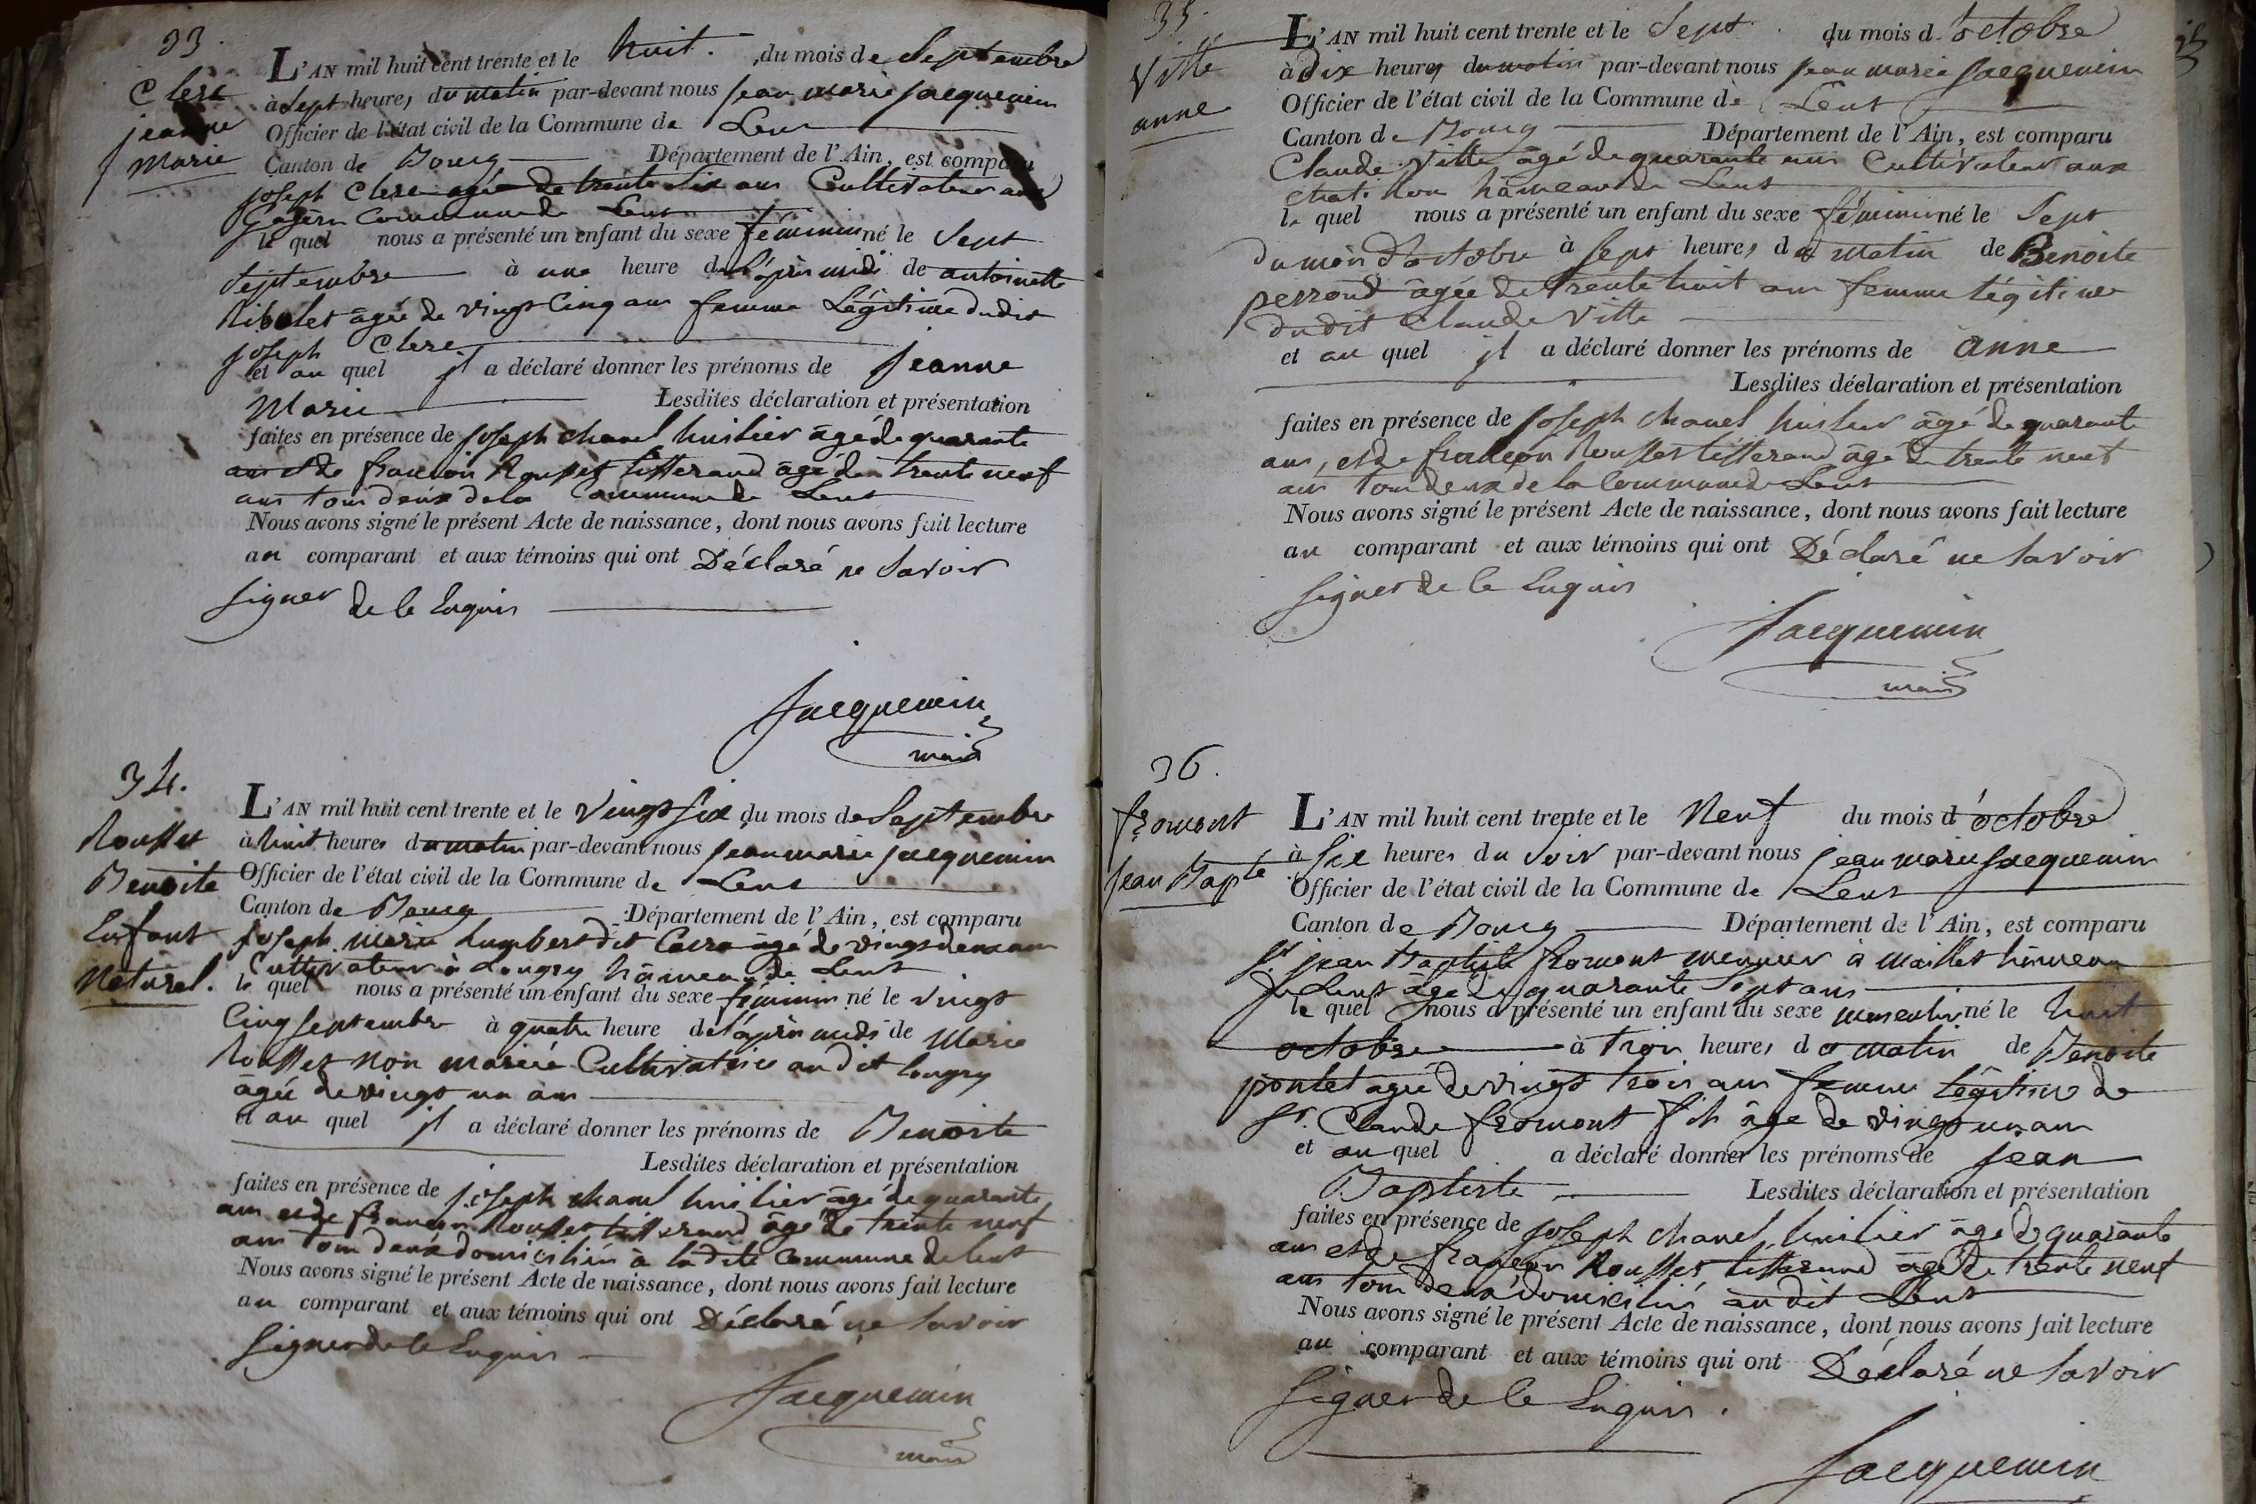 33.
Clerc
jeanne
Marie
L'AN mil huit cent trente et le huit. du mois de Septembre
à Sept heures du matin par-devant nous jean marie jacquemin
Officier de l'état civil de la Commune de Lent
Canton de Bourg Département de l'Ain, est comparu
joseph Clerc agé de trente six ans Cultivateur aux
Commune de Lent
le quel nous a présenté un enfant du sexe féminin né le Sept
Septembre à une heure de l'après midi de antoinette
Ribolet âgée de vingt Cinq ans femme Légitime dudit
joseph Clerc
et au quel jl a déclaré donner les prénoms de jeanne
Marie Lesdites déclaration et présentation
faites en présence de joseph chanel huilier âgé de quarante
ans et de françois Rousset tisserand âgé de trente neuf
ans tous deux de la Commune de Lent
Nous avons signé le présent Acte de naissance, dont nous avons fait lecture
au comparant et aux témoins qui ont Déclaré ne Savoir
Signer de ce Enquis
Jacquemin
maire
34.
Rousset
Benoite
Enfant
Naturel.
L'AN mil huit cent trente et le vingt Six du mois de Septembre
à huit heures du matin par-devant nous jean marie jacquemin
Officier de l'état civil de la Commune de Lent
Canton de Bourg Département de l'Ain, est comparu
joseph marie humbert dit Carra âgé de vingt deux ans
Cultivateur à Longry hameau de Lent
le quel nous a présenté un enfant du sexe féminin né le vingt
Cinq Septembre à quatre heure de l'après midi de Marie
Rousset non mariée Cultivatrice au dit Longry
âgée de vingt un ans
et au quel jl a déclaré donner les prénoms de Benoite
Lesdites déclaration et présentation
faites en présence de joseph chanel huilier âgé de quarante
ans et de françois Rousset tisserand âgé de trente neuf
ans tous deux domiciliés à ladite Commune de Lent
Nous avons signé le présent Acte de naissance, dont nous avons fait lecture
au comparant et aux témoins qui ont Déclaré ne Savoir
Signer de ce Enquis
Jacquemin
maire
35.
Vitte
anne
L'AN mil huit cent trente et le Sept du mois d'octobre
à dix heures du matin par-devant nous jean marie jacquemin
Officier de l'état civil de la Commune de Lent
Canton de Bourg Département de l'Ain, est comparu
Claude Vitte âgé de quarante ans Cultivateur aux
hâmeau de Lent
le quel nous a présenté un enfant du sexe féminin né le Sept
du mois d'octobre à Sept heures du matin de Benoite
perroud âgée de trente huit ans femme légitime
dudit Claude Vitte
et au quel jl a déclaré donner les prénoms de anne
Lesdites déclaration et présentation
faites en présence de joseph chanel huilier âgé de quarante
ans, et de françois Rousset tisserand âgé de trente neuf
ans tous deux de la Commune de Lent
Nous avons signé le présent Acte de naissance, dont nous avons fait lecture
au comparant et aux témoins qui ont Déclaré ne Savoir
Signer de ce Enquis
Jacquemin
maire
36.
fromont
jean Bapte
L'AN mil huit cent trente et le Neuf du mois d'octobre
à Six heures du Soir par-devant nous jean marie jacquemin
Officier de l'état civil de la Commune de Lent
Canton de Bourg Département de l'Ain, est comparu
Sr jean Baptiste fromont meunier à Maillet hâmeau
de Lent âgé de quarante Sept ans
le quel nous a présenté un enfant du sexe masculin né le huit
octobre à trois heures du matin de Benoite
pontet agée de vingt trois ans femme Légitime de
Sr. Claude fromont fils âgé de vingt un ans
et au quel a déclaré donner les prénoms de jean
Baptiste Lesdites déclaration et présentation
faites en présence de joseph chanel huilier âgé de quarante
ans et de françois Rousset tisserand âgé de trente neuf
ans tous deux domiciliés au dit Lent
Nous avons signé le présent Acte de naissance, dont nous avons fait lecture
au comparant et aux témoins qui ont Déclaré ne Savoir
Signer de ce Enquis.
Jacquemin